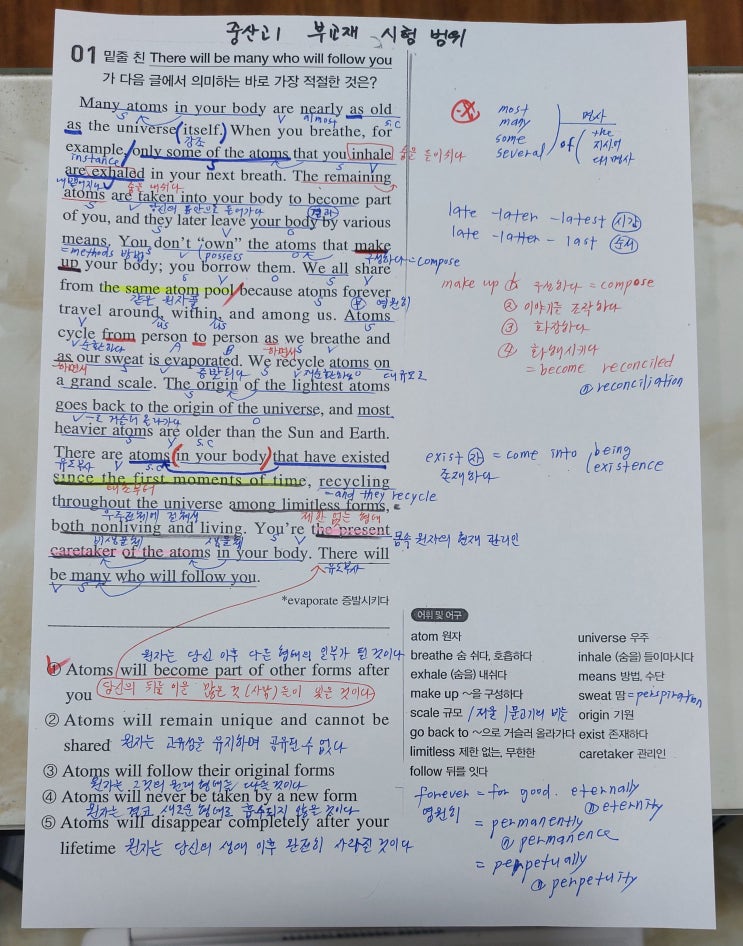 중산고1 부교재 시험 범위
01 밑줄 친 There will be many who will follow you
가 다음 글에서 의미하는 바로 가장 적절한 것은?
Many atoms in your body are nearly as old
almost
as the universe itself. When you breathe, for
강조
example, only some of the atoms that you inhale
숨을 들이쉬다
instance
are exhaled in your next breath. The remaining
숨을 내쉬다
atoms are taken into your body to become part
당신의 몸안으로 들어가다
of you, and they later leave your body by various
means. You don't “own” the atoms that make
= methods 방법 possess 구성하다 = compose
up your body; you borrow them. We all share
from the same atom pool because atoms forever
같은 원자풀 영원히
travel around, within, and among us. Atoms
us us
cycle from person to person as we breathe and
순환하다 A B 하면서
as our sweat is evaporated. We recycle atoms on
하면서 증발되다 대규모로
a grand scale. The origin of the lightest atoms
goes back to the origin of the universe, and most
~로 거슬러 올라가다
heavier atoms are older than the Sun and Earth.
There are atoms (in your body) that have existed
유도부사
since the first moments of time, recycling
태초부터 = and they recycle
throughout the universe among limitless forms,
우주전체에 걸쳐서 제한 없는 형태
both nonliving and living. You're the present
비생물체 생물체
caretaker of the atoms in your body. There will
몸속 원자의 현재 관리인
유도부사
be many who will follow you.
*evaporate 증발시키다
most
many
some
several
of
명사
the
지시어
대명사
late - later - latest 시간
late - latter - last 순서
make up ① 구성하다 = compose
② 이야기를 조작하다
③ 화장하다
④ 화해시키다
= become reconciled
ⓝ reconciliation
exist 자 = come into being
existence
존재하다
원자는 당신 이후 다른 형태의 일부가 될 것이다
① Atoms will become part of other forms after
you 당신의 뒤를 이을 많은 것(사람)들이 있을 것이다
② Atoms will remain unique and cannot be
shared 원자는 고유성을 유지하며 공유될 수 없다
③ Atoms will follow their original forms
원자는 그것의 원래 형태를 따를 것이다
④ Atoms will never be taken by a new form
원자는 결코 새로운 형태로 흡수되지 않을 것이다
⑤ Atoms will disappear completely after your
lifetime 원자는 당신의 생애 이후 완전히 사라질 것이다
어휘 및 어구
atom 원자 universe 우주
breathe 숨 쉬다, 호흡하다 inhale (숨을) 들이마시다
exhale (숨을) 내쉬다 means 방법, 수단
make up ~을 구성하다 sweat 땀 = perspiration
scale 규모 / 저울 / 물고기의 비늘 origin 기원
go back to ~으로 거슬러 올라가다 exist 존재하다
limitless 제한 없는, 무한한 caretaker 관리인
follow 뒤를 잇다
forever = for good. eternally
영원히 ⓝ eternity
= permanently
ⓝ permanence
= perpetually
ⓝ perpetuity